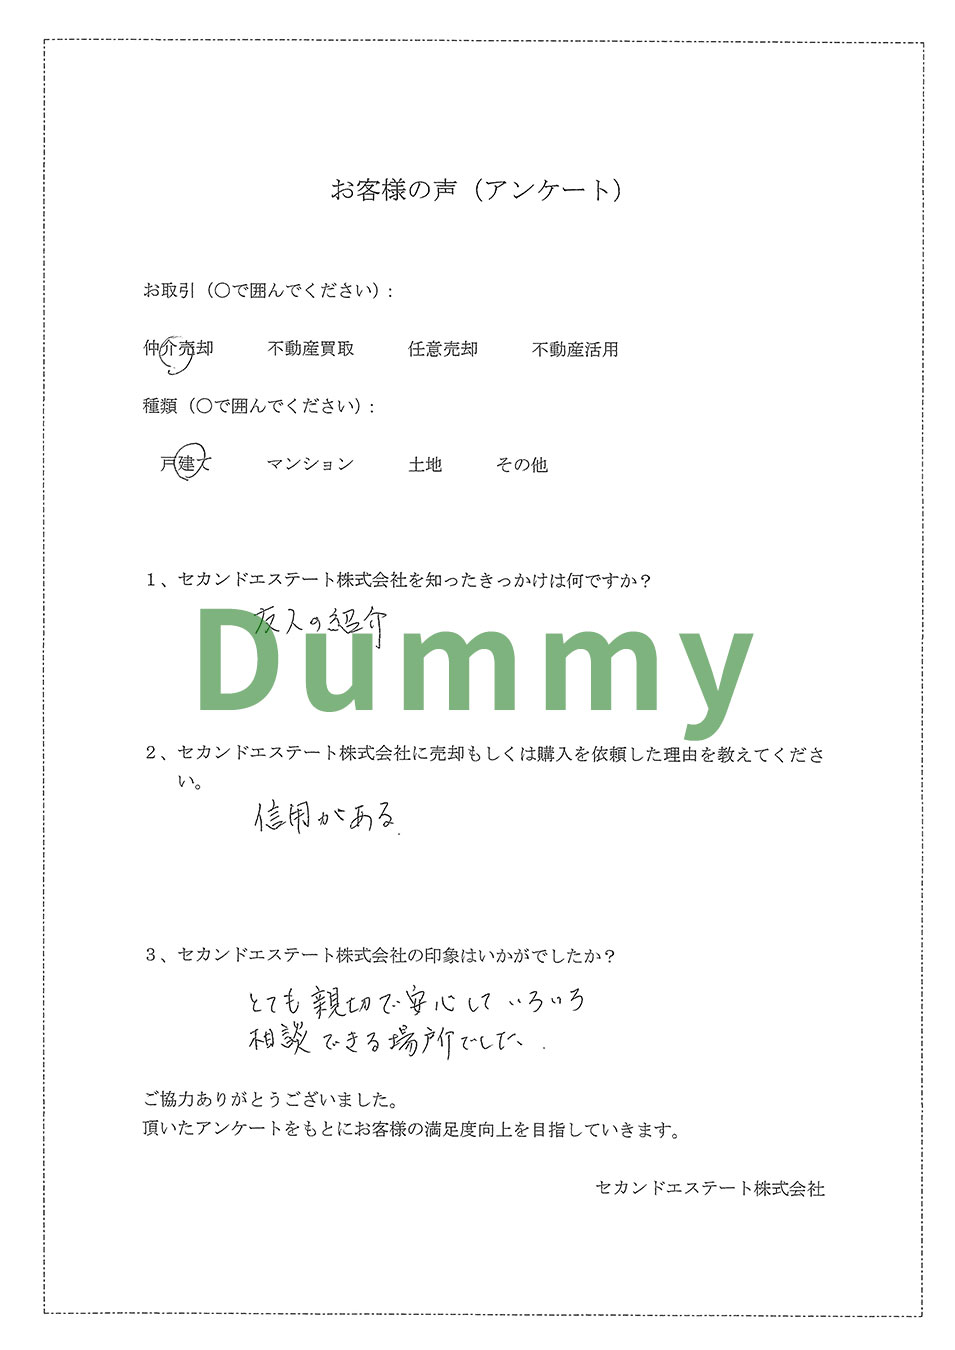 お客様の声（アンケート）
お取引（〇で囲んでください）:
仲介売却　不動産買取　任意売却　不動産活用
種類（〇で囲んでください）:
戸建て　マンション　土地　その他
１、セカンドエステート株式会社を知ったきっかけは何ですか？
友人の紹介
Dummy
２、セカンドエステート株式会社に売却もしくは購入を依頼した理由を教えてくださ
い。
信用がある.
３、セカンドエステート株式会社の印象はいかがでしたか？
とても親切で安心していろいろ
相談できる場所でした.
ご協力ありがとうございました。
頂いたアンケートをもとにお客様の満足度向上を目指していきます。
セカンドエステート株式会社